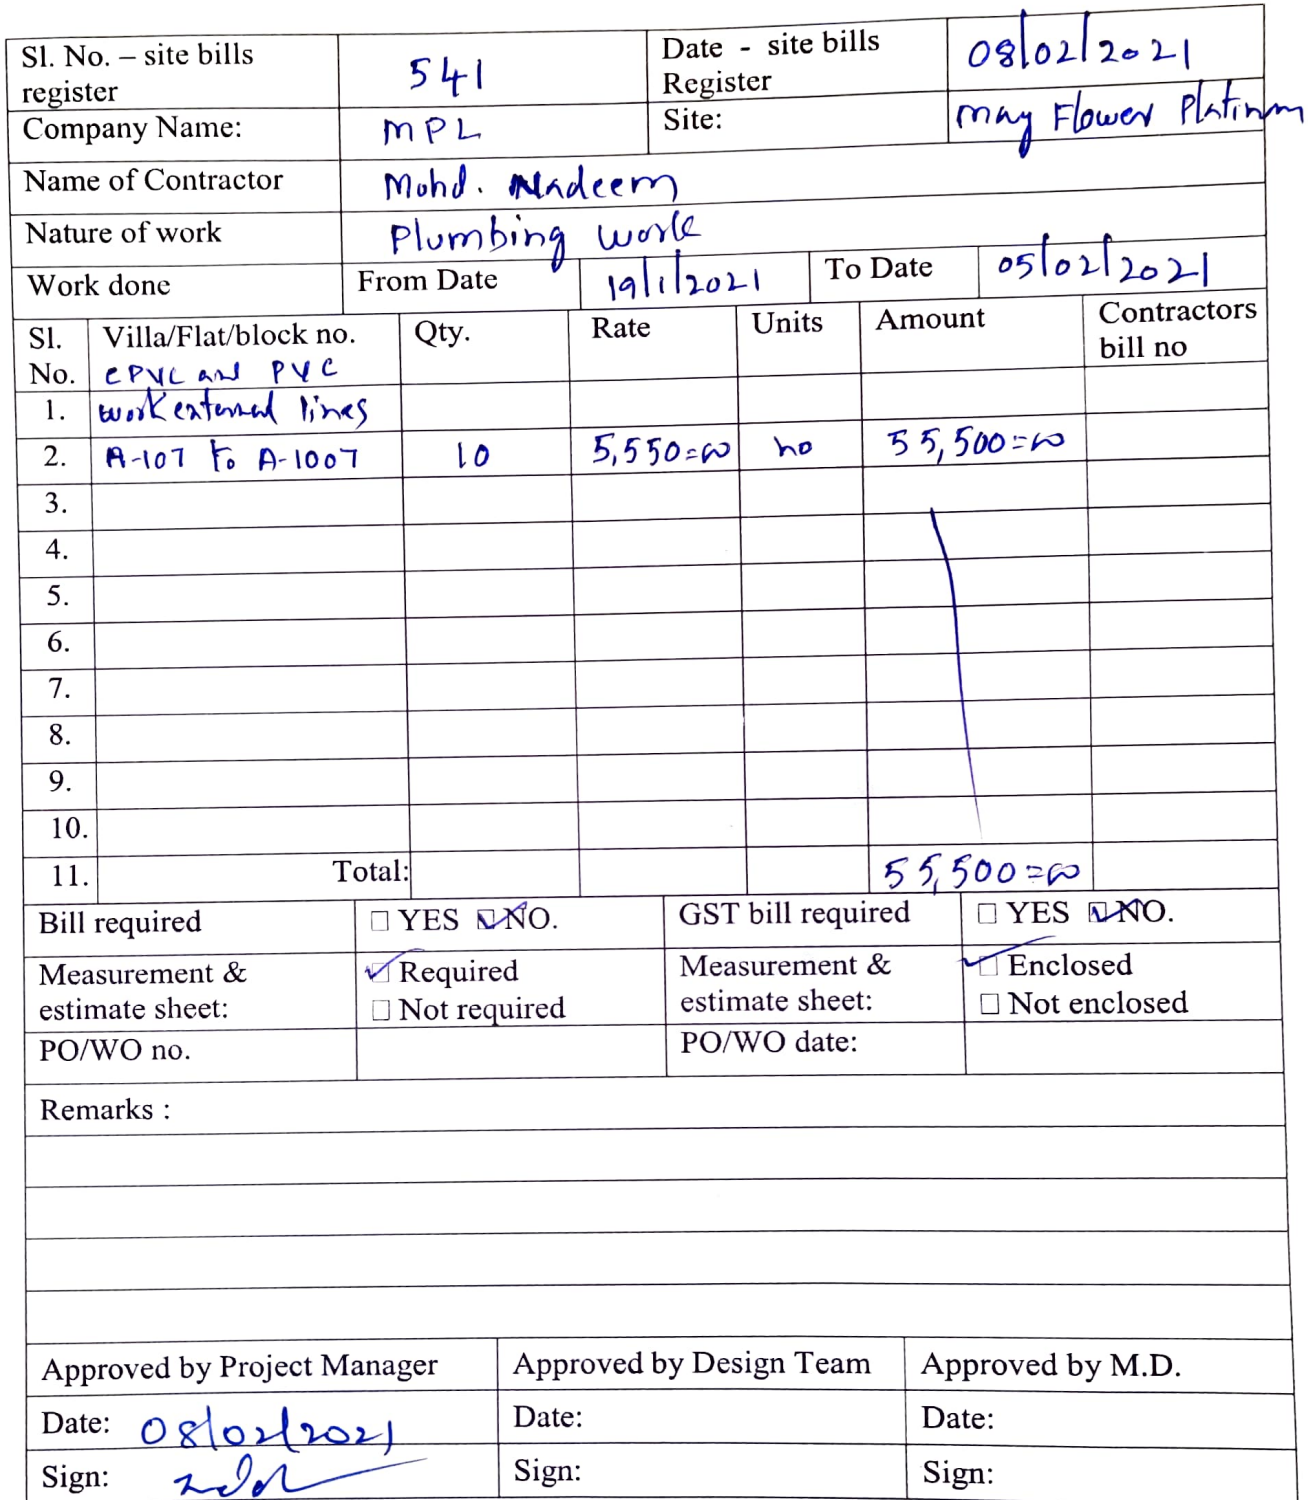 Sl. No. – site bills register 541 Date - site bills Register 08/02/2021
Company Name: MPL Site: May Flower Platinum
Name of Contractor Mohd. Nadeem
Nature of work Plumbing work
Work done From Date 19/1/2021 To Date 05/02/2021
Sl. No. Villa/Flat/block no. Qty. Rate Units Amount Contractors bill no
CPVC and PVC
1. work external lines
2. A-107 to A-1007 10 5,550=00 no 55,500=00
3.
4.
5.
6.
7.
8.
9.
10.
11. Total: 55,500=00
Bill required ☐ YES ☑ NO. GST bill required ☐ YES ☑ NO.
Measurement & estimate sheet: ☑ Required Measurement & estimate sheet: ☑ Enclosed
☐ Not required ☐ Not enclosed
PO/WO no. PO/WO date:
Remarks :
Approved by Project Manager Approved by Design Team Approved by M.D.
Date: 08/02/2021 Date: Date:
Sign: Sign: Sign: